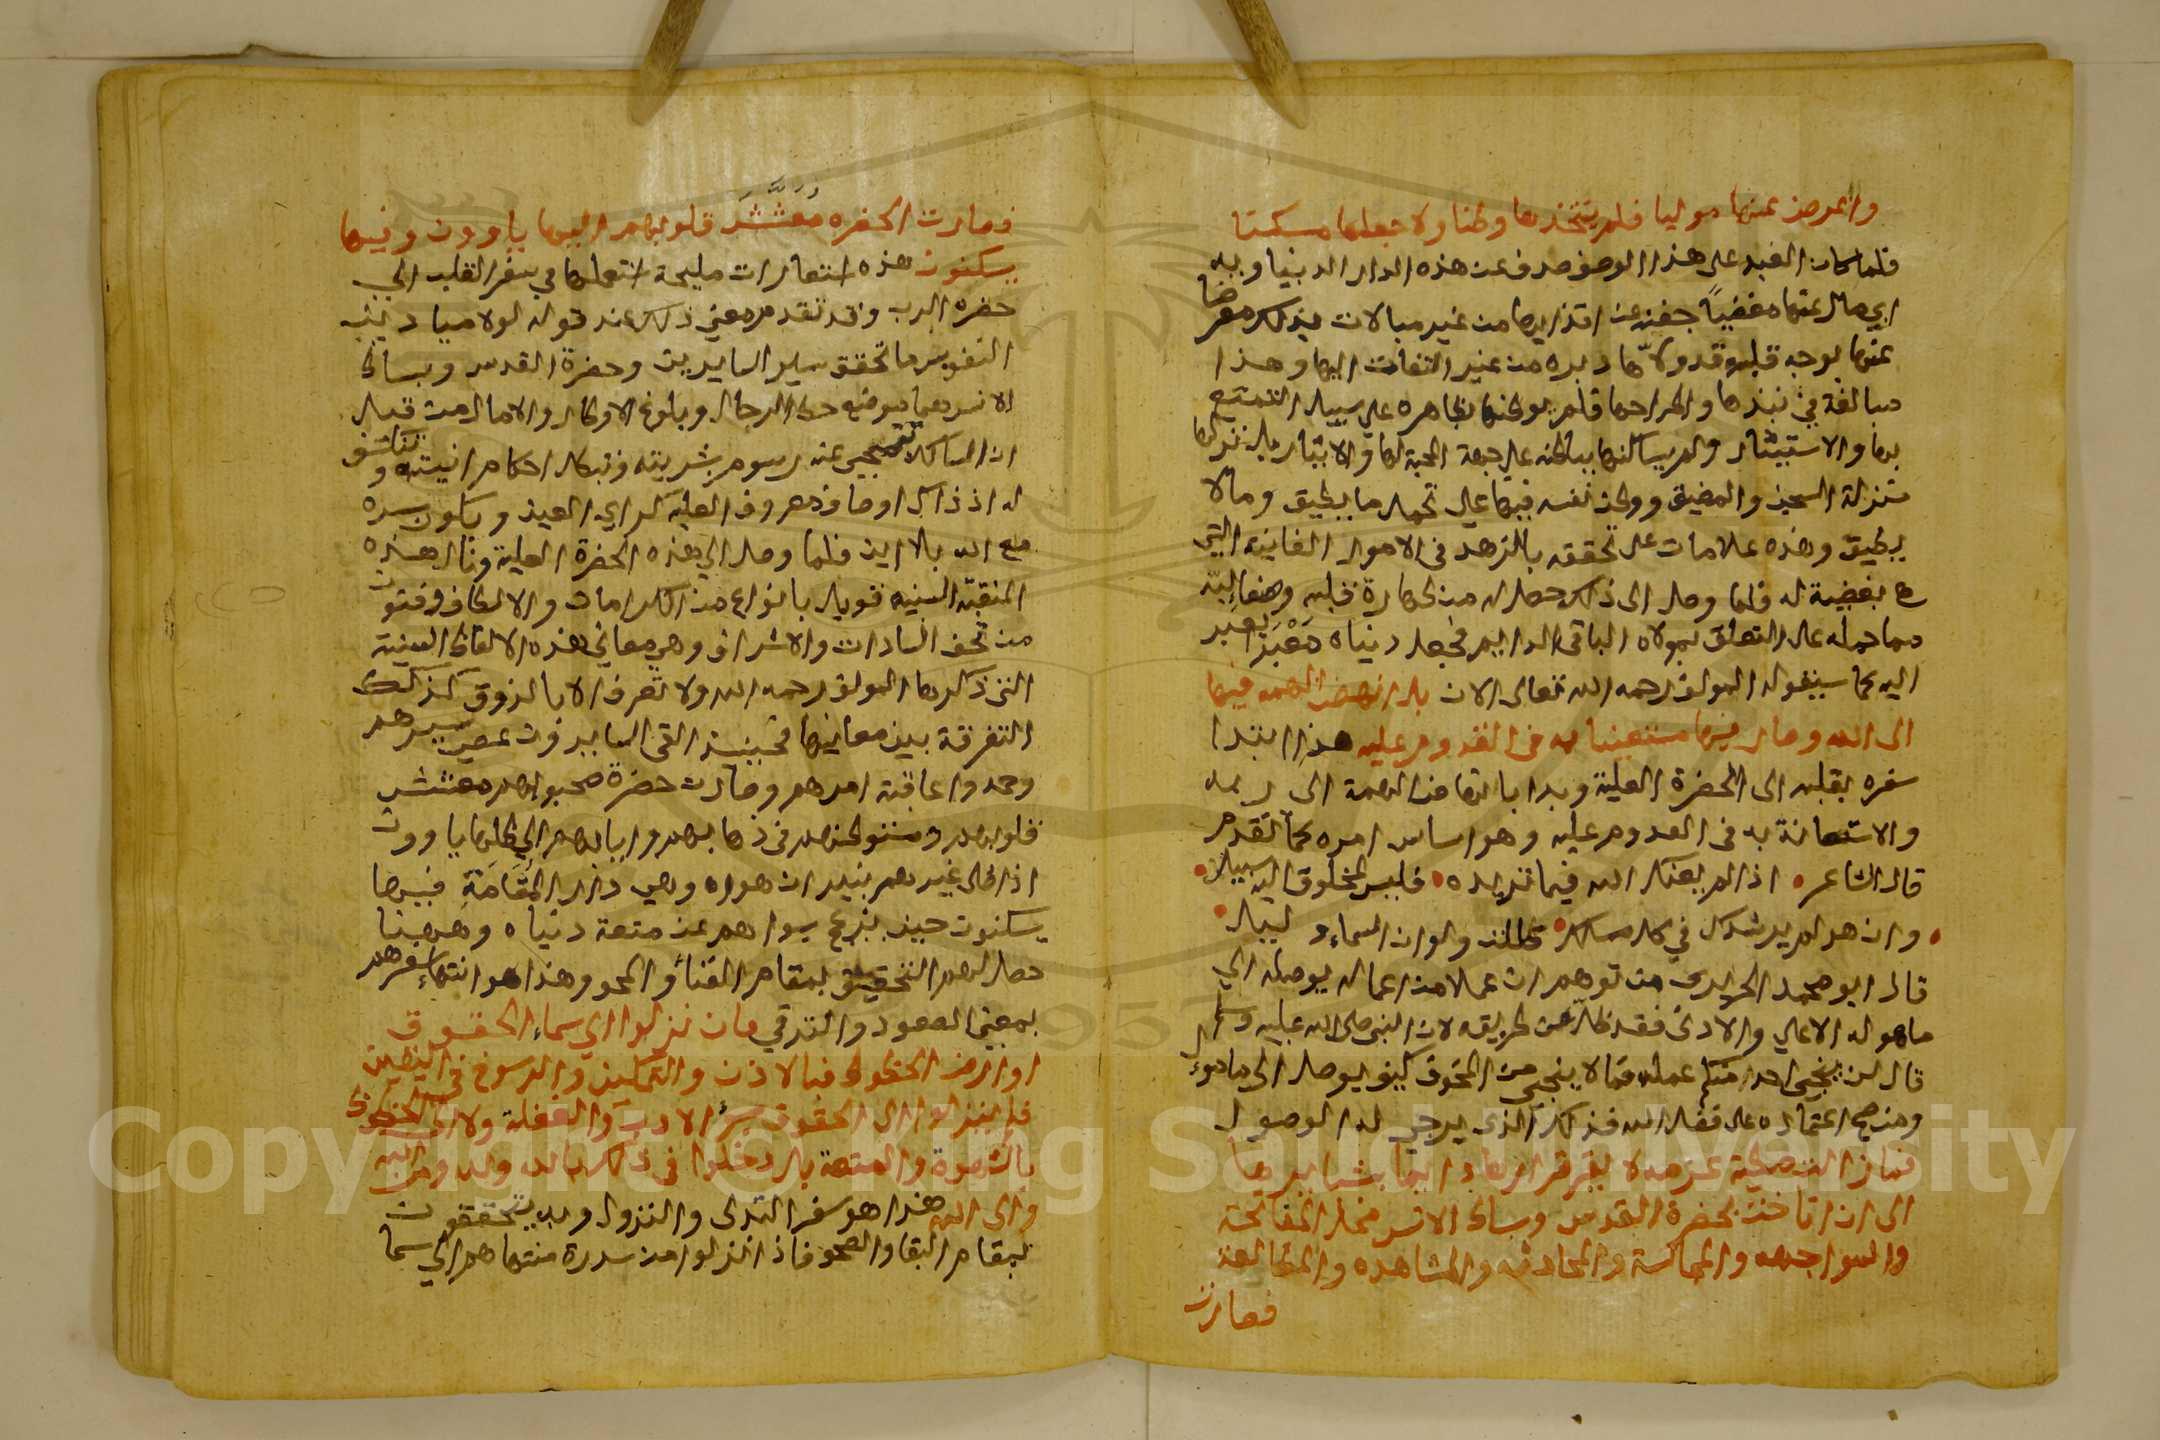 واعرض عنها موليا فلم يتخذها وطنا ولا جعلها مسكنا
فلما كان العبد على هذا الوصف صدف عن هذه الدار الدنيا وبه
اي مال عنها مغضيًا جفنه عن اقذايها من غير مبالات بذلك معرضا
عنها بوجه قلبه قد ولّاها دبره من غير التفات اليها وهذا
مبالغة في نبذها واطراحها فلم يوطنها بظاهره على سبيل التمتع
بها والاستيثار ولم يساكنها بباطنه على جهة المحبة لها والايثار بل نزلها
منزلة السجن والمضيق ووطن نفسه فيها على تحمل ما يطيق وما لا
يطيق وهذه علامات على تحققه بالزهد في الامور الفانية التي
هي بغيضة له فلما وصل الى ذلك حصل له من طهارة قلبه وصفا لبّه
مما حمله على التعلق بمولاه الباقي الدايم فجعل دنياه مَعْبَرًا يعبر
اليه كما سيقوله المولف رحمه الله تعالى الان بل انهض الهمه فيها
الى الله وصار فيها مستعينا به في القدوم عليه هذا ابتدا
سفره بقلبه الى الحضرة العلية وبدا بانهاض الهمة الى ربه
والاستعانة به في القدوم عليه وهو اساس امره كما تقدم
قال الشاعر اذا لم يعنك الله فيما تريده فليس لمخلوق اليه سبيلا
وان هو لم يرشدك في كل مسلك ظللت ولو ان السماء دليل
قال ابو محمد الجريري من توهم ان عملا من اعماله يوصله الى
ماموله الاعلى والادنى فقد ظل عن طريقه لان النبي صلى الله عليه وسلم
قال لن ينجي احدا منكم عمله فما لا ينجي من المخوف كيف يوصل الى المامول
ومن صح اعتماده على فضل الله فذلك الذي يرجى له الوصول
فما زال مطية عزمه لا يقر قرارها دايما بشدايرها
الى ان اناخت بحضرة القدس وبساط الانس محل المفاتحة
والمواجهه والمجالسة والمحادثه والمشاهده والمطالعة
فصارت
فصارت الحضره مُعَشَّشَ قلوبهم اليها ياوون وفيها
يسكنون هذه استعارات مليحة استعملها في سفر القلب الى
حضرة الرب وقد تقدم معنى ذلك عند قوله لولا ميادين
النفوس ما تحقق سير السايرين وحضرة القدس وبساط
الانس هما موضع حط الرحال وبلوغ الاوطار والامال من قبل
ان السالك تنمحي عنه رسوم بشريته وتبطل احكام انيته وتكاشف
له اذ ذاك اوصاف معروفه العلية كراي العين ويكون سره
مع الله بلا اين فلما وصل الى هذه الحضرة العلية ونال هذه
المنقبة السنيه قوبل بانواع من الكرامات والالطاف وفنون
من تحف السادات والاشراف وهي معاني هذه الالفاظ السنية
التي ذكرها المولف رحمه الله ولا تعرف الا بالذوق كذلك
التفرقة بين معانيها فحينيذ القى السايرون عصى سيرهم
وحمدوا عاقبة امرهم وصارت حضرة محبوبهم معشش
قلوبهم ومستوطنهم في ذهابهم وايابهم الى ظلها ياوون
اذا ظل غيرهم بنيران هواه وهي دار المقَامَةِ فيها
يسكنون حين يزعج سواهم عن متعة دنياه وههنا
حصل لهم التحقيق بمقام الفنا والمحو وهذا هو انتهاء سفرهم
بمعنى الصعود والترقي فان نزلوا الى سماء الحقوق
او ارض الحظوظ فبالاذن والتمكين والرسوخ في اليقين
فلم ينزلوا الى الحقوق بسوء الادب والغفلة ولا الى الحظوظ
بالشهوة والمتعة بل دخلوا في ذلك بالله ولله ومن الله
والى الله هذا هو سفر التدلى والنزول وبه يتحققون
بمقام البقا والصحو فاذا نزلوا من سدرة منتهاهم الى سما